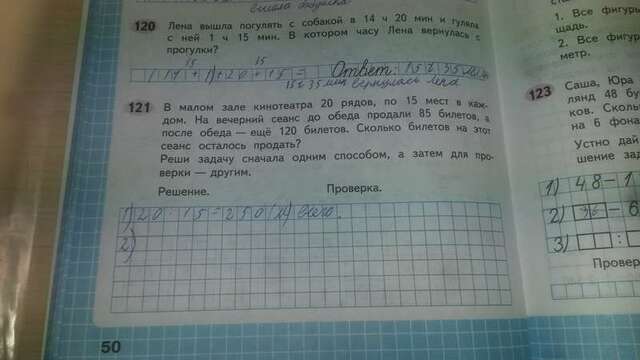 вышла
120 Лена вышла погулять с собакой в 14 ч 20 мин и гуляла
с ней 1 ч 15 мин. В котором часу Лена вернулась с
прогулки?
15 15
Ответ: 15 ч 35 мин
15 ч 35 мин вернулась Лена
121 В малом зале кинотеатра 20 рядов, по 15 мест в каж-
дом. На вечерний сеанс до обеда продали 85 билетов, а
после обеда — ещё 120 билетов. Сколько билетов на этот
сеанс осталось продать?
Реши задачу сначала одним способом, а затем для про-
верки — другим.
Решение. Проверка.
1) 20 · 15 = 250 (м) всего.
2)
50
1. Все фигуры
щадь.
2. Все фигур
метр.
123 Саша, Юра
лянд 48 бу
ков. Сколь
на 6 фона
Устно дай
шение зад
1) 48 – 1
2) 36 – 6
3) :
Провер